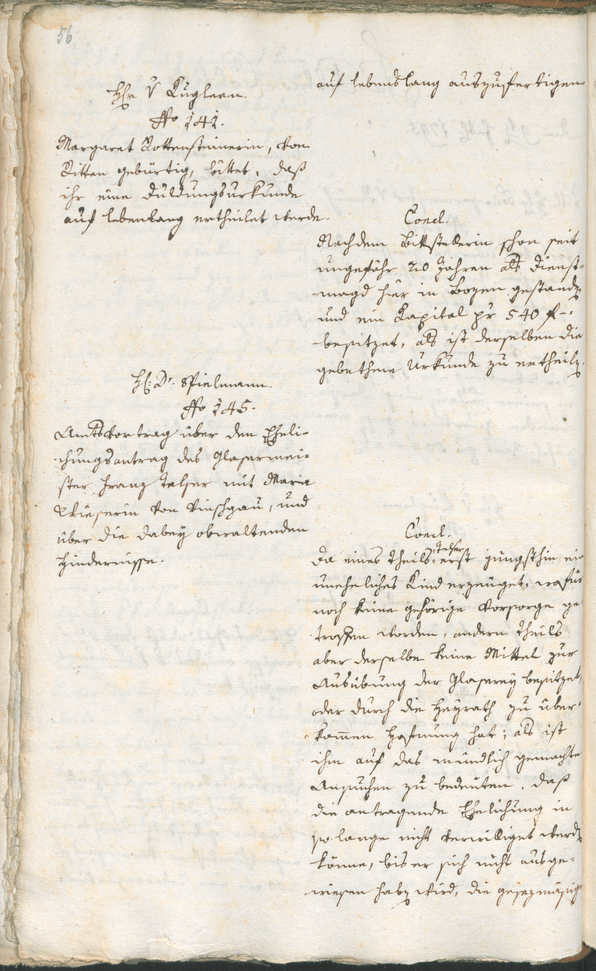 56
auf lebenslang auszufertigen
H: v Kuglern.
No 141.
Margaret Rottensteinerin, von
Ritten gebürtig, bittet, daß
ihr eine Duldungsurkunde
auf lebenlang ertheilet werde.
Concl.
Nachdem Bittstelerin schon seit
ungefähr 20 Jahren als Dienst-
magd hier in Bozen gestanden
und ein Kapital pr 540 f -
besitzet, als ist derselben die
gebethene Urkunde zu ertheilen.
H: Dr. Spielmann.
No 145.
Amtsvortrag über den Eheli-
chungsantrag des Glasermei-
ster Franz Telser mit Maria
Wieserin von Vinschgau, und
über die dabey obwaltenden
Hindernisse.
Concl.
Da eines Theils Telser erst jüngsthin ein
uneheliches Kind erzeuget, wofür
noch keine gehörige Vorsorge ge
troffen worden, andern Theils
aber derselbe keine Mittel zur
Ausübung der Glaserey besitzet,
oder durch die Heyrath zu über-
kommen Hofnung hat; als ist
ihm auf das mündlich gemachte
Ansuchen zu bedeuten, daß
die antragende Ehelichung in
so lange nicht verwilliget werden
könne, bis er sich nicht ausge-
wiesen haben wird, die gesezmäsige